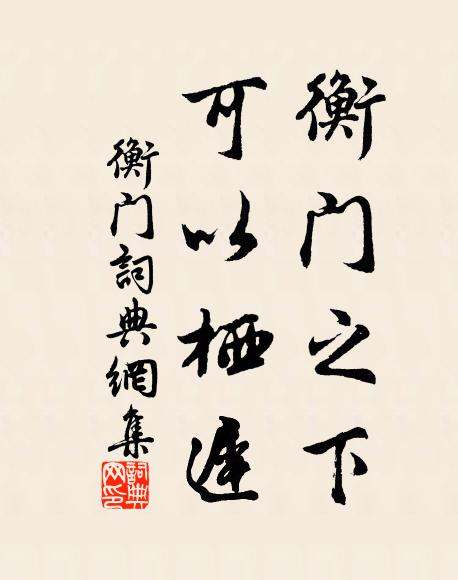 衡门之下
可以栖遲
衡门詞典網集
詞典网印